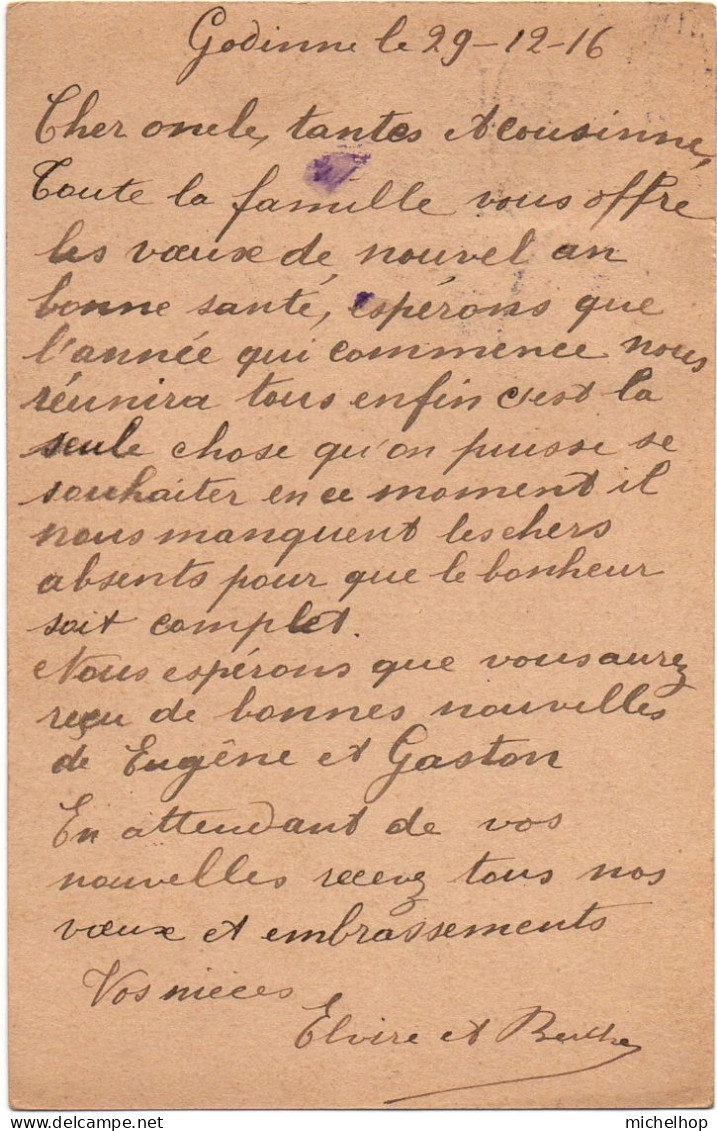 Godinne le 29-12-16
Cher oncle, tantes et cousinne,
Toute la famille vous offre
les vœux de nouvel an
bonne santé, espérons que
l'année qui commence nous
réunira tous enfin c'est la
seule chose qu'on puisse se
souhaiter en ce moment il
nous manquent les chers
absents pour que le bonheur
soit complet.
Nous espérons que vous aurez
reçu de bonnes nouvelles
de Eugêne et Gaston
En attendant de vos
nouvelles recevez tous nos
vœux et embrassements
Vos nieces
Elvire et Berthe
michelhop